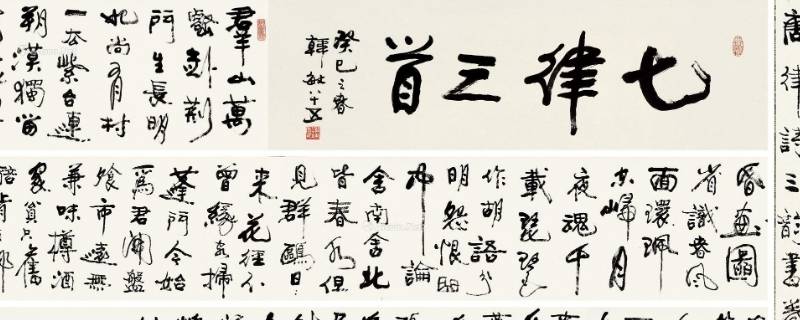 七律三首
癸巳之春
韓敏八十五
羣山萬
壑赴荆
門生長明
妃尚有村
一去紫台連
朔漠獨留
昏畫圖
省識春風
面環珮
空歸月
夜魂千
載琵琶
作胡語分
明怨恨曲
中論
舍南舍北
皆春水但
見群鷗日
來花徑不
曾緣客掃
蓬門今始
爲君開盤
飧市遠無
兼味樽酒
家貧只舊
醅肯
唐律詩三